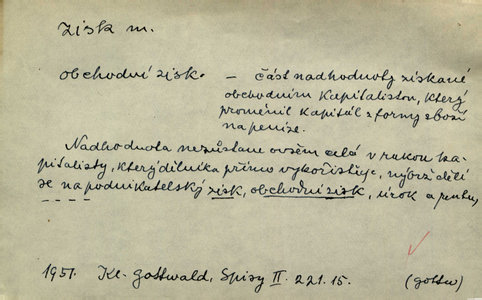 zisk m.
obchodní zisk. – část nadhodnoty získané
obchodním kapitalistou, který
proměnil kapitál z formy zboží
na peníze.
Nadhodnota nezůstane ovšem celá v rukou ka-
pitalisty, který dělníka přímo vykořisťuje, nýbrž dělí
se na podnikatelský zisk, obchodní zisk, úrok a rentu,
– – – –
1951. Kl. Gottwald, Spisy II. 221. 15. (gottw)